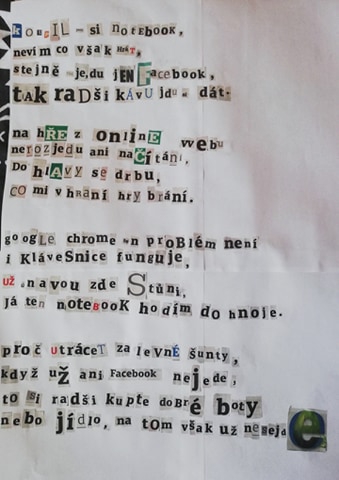 koupIL - si notebook,
nevím co však HRÁT,
stejně - je,du jEN Facebook,
tAK raDši kÁVU jdu si dát.
na hŘE z onlinE webu
nerozjedu ani naČítání,
Do hlAvy se drbu,
CO mi v hraní hry brání.
google chrome on proBlém není
i KláveSnice funguje,
UŽ únavou zde Stůni,
Já ten noteBooK hodím do hnoje.
proč utráceT za levnÉ šunty,
když už ani Facebook nejede,
to si radši kupte doBRé boty
nebo jídlo, na tom však už nesejde